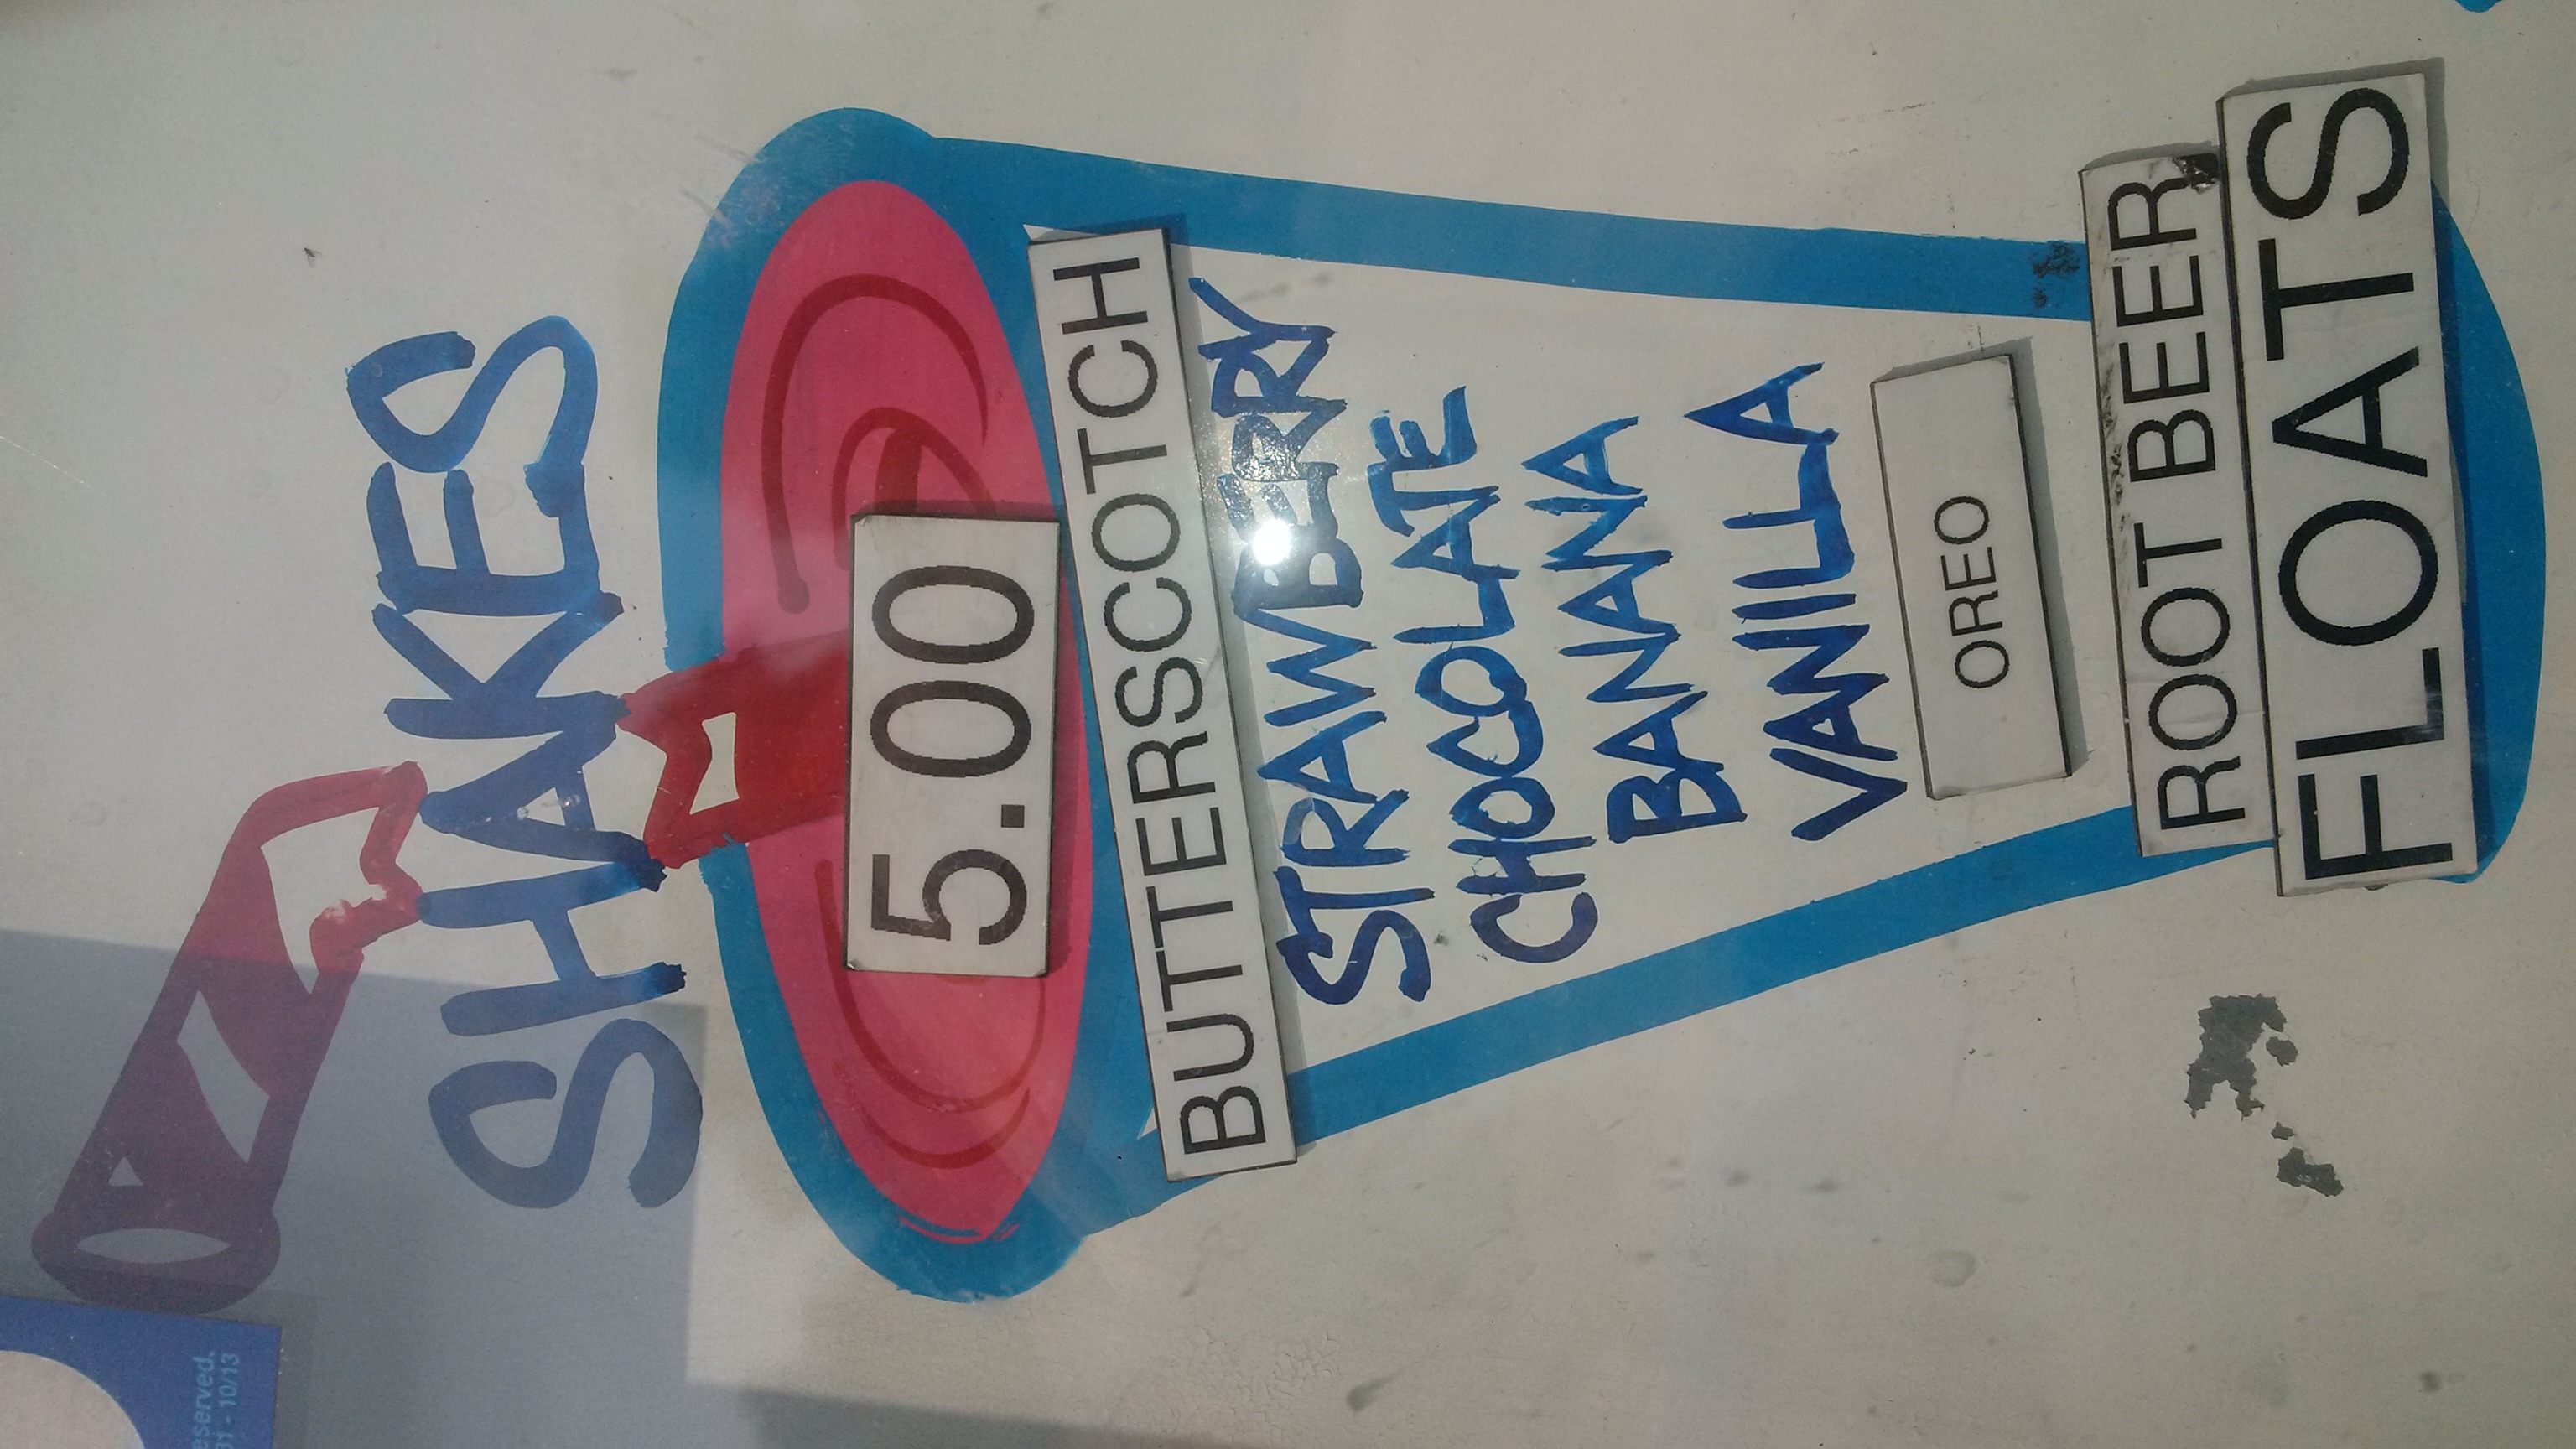 eserved.
31 - 10/13
SHAKES
5.00
BUTTERSCOTCH
STRAWBERRY
CHOCOLATE
BANANA
VANILLA
OREO
ROOT BEER
FLOATS